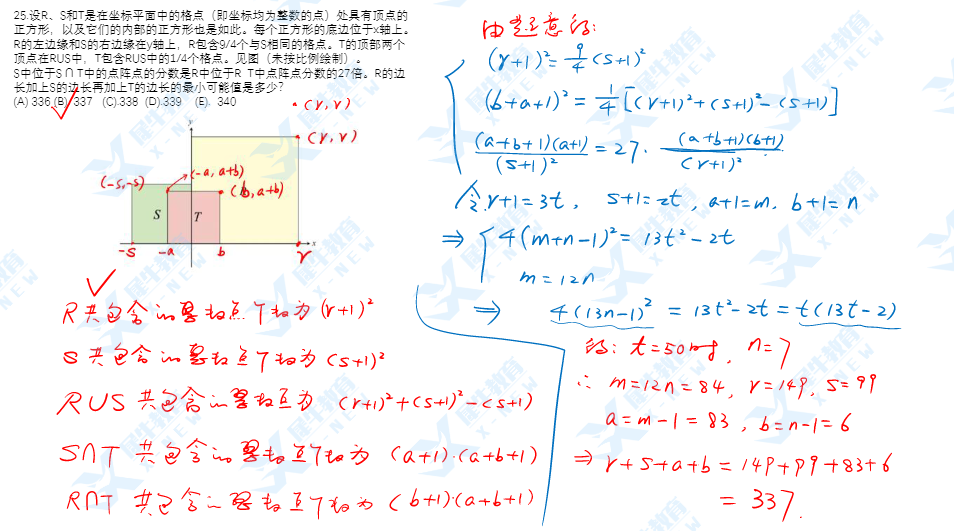 25.设R、S和T是在坐标平面中的格点（即坐标均为整数的点）处具有顶点的
正方形，以及它们的内部的正方形也是如此。每个正方形的底边位于x轴上。
R的左边缘和S的右边缘在y轴上，R包含9/4个与S相同的格点。T的顶部两个
顶点在RUS中，T包含RUS中的1/4个格点。见图（未按比例绘制）。
S中位于S∩T中的点阵点的分数是R中位于R T中点阵点分数的27倍。R的边
长加上S的边长再加上T的边长的最小可能值是多少？
(A) 336 (B) 337 (C).338 (D).339 (E). 340
(r, r)
y
(r, r)
(-s, -s)
(-a, a+b)
(b, a+b)
S
T
x
-s
-a
b
r
R共包含的整数点个数为(r+1)²
S共包含的整数点个数为(s+1)²
RUS共包含的整数点为 (r+1)²+(s+1)²-(s+1)
S∩T 共包含的整数点个数为 (a+1)·(a+b+1)
R∩T 共包含的整数点个数为 (b+1)(a+b+1)
由题意得:
(r+1)²=9/4(s+1)²
(b+a+1)²=1/4[(r+1)²+(s+1)²-(s+1)]
(a+b+1)(a+1)/(s+1)²=27·(a+b+1)(b+1)/(r+1)²
令r+1=3t, s+1=2t, a+1=m, b+1=n
⇒ 4(m+n-1)²=13t²-2t
m=12n
⇒ 4(13n-1)²=13t²-2t=t(13t-2)
得: t=50时, n=7
∴ m=12n=84, r=149, s=99
a=m-1=83, b=n-1=6
⇒ r+s+a+b=149+99+83+6
=337.
犀牛教育
X-NEW